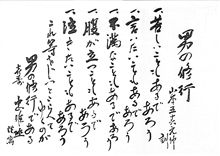 男の修行
山本五十六元帥
訓
一、苦しいこともあるであろう
一、言いたいこともあるであろう
一、不満なこともあるであろう
一、腹の立つこともあるであろう
一、泣きたいこともあるであろう
これ等をじっとこらえてゆくのが
男の修行である